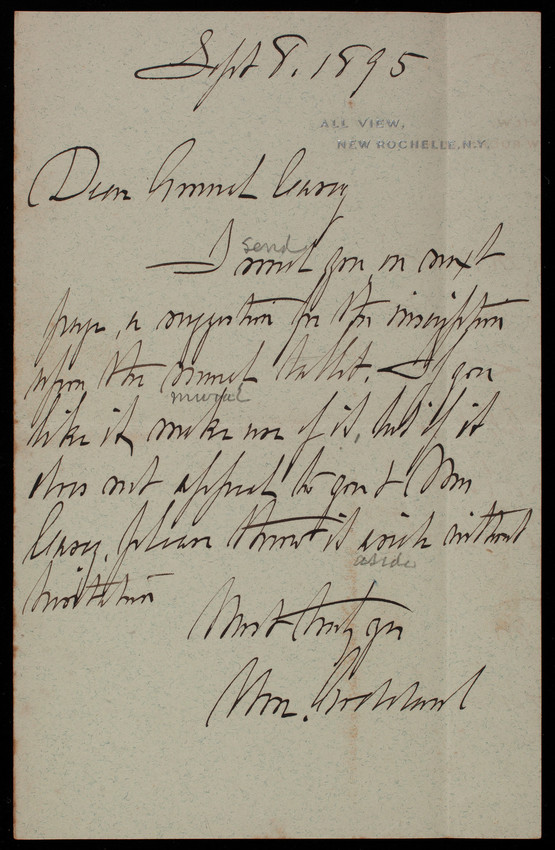 Sept 8. 1895
ALL VIEW,
NEW ROCHELLE, N.Y.
Dear General Casey
send
I send you on next
page, a suggestion for the inscription
upon the mural tablet. If you
mural
like it make use of it, but if it
does not appeal to you & Mrs
Casey, please throw it aside without
aside
hesitation
Most truly yrs
Wm.